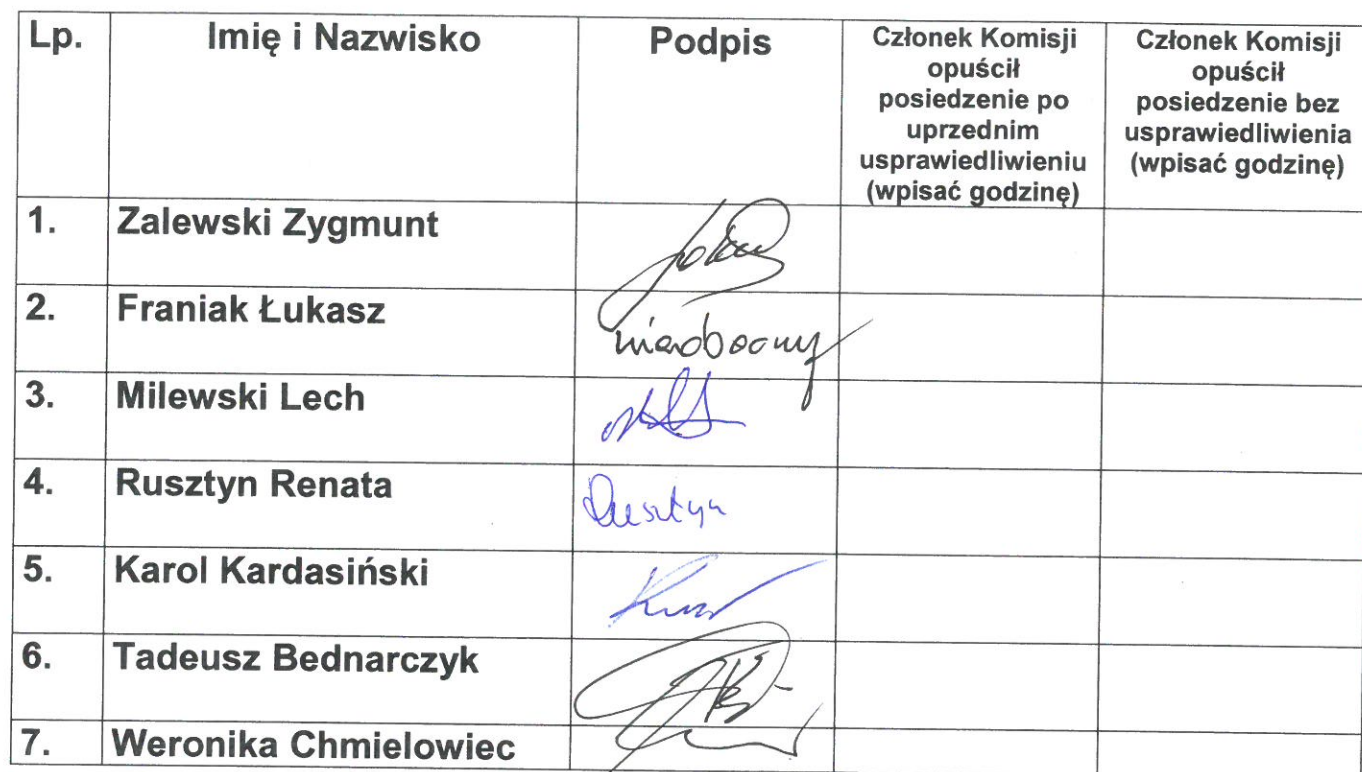 Lp. Imię i Nazwisko Podpis Członek Komisji opuścił posiedzenie po uprzednim usprawiedliwieniu (wpisać godzinę) Członek Komisji opuścił posiedzenie bez usprawiedliwienia (wpisać godzinę)
1. Zalewski Zygmunt
2. Franiak Łukasz nieobecny
3. Milewski Lech
4. Rusztyn Renata Rusztyn
5. Karol Kardasiński
6. Tadeusz Bednarczyk
7. Weronika Chmielowiec